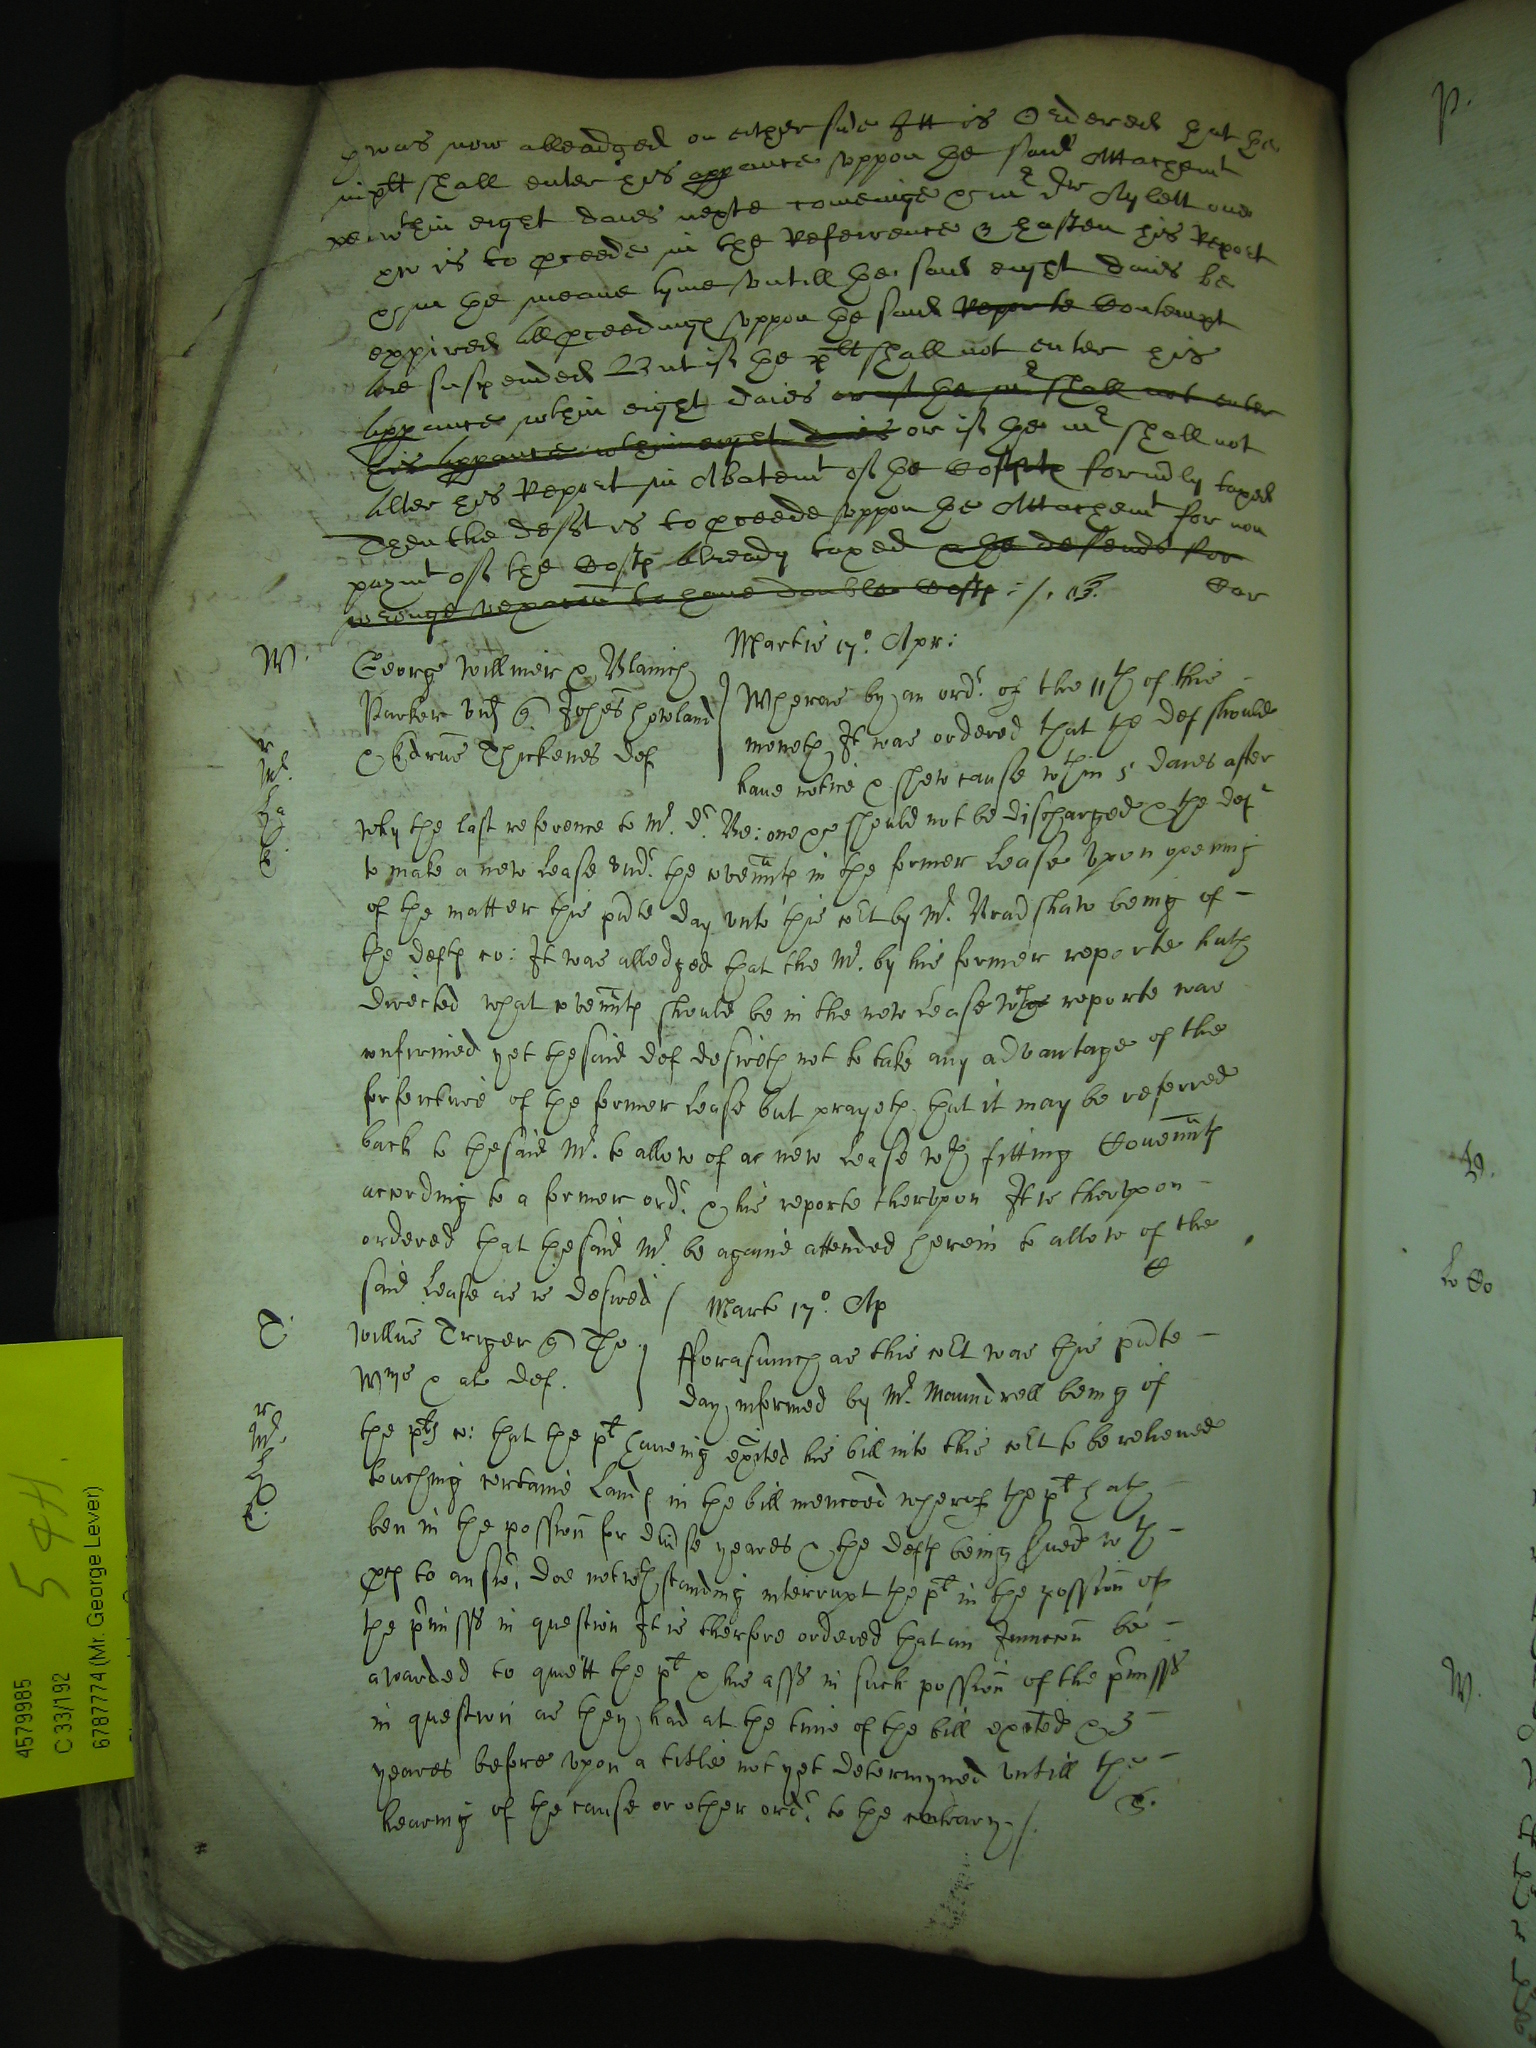 was now alleadged on either side Itt is Ordered that the
pltt shall enter his appance vppon the said Attachemt
wthin eight daies nexte comeinge & mr dr Aylett one
&c is to pceede in the Referrence & hasten his Report
& in the meane tyme vntill the said eight daies be
expired all pceedings vppon the said Reporte Contempt
are suspended But if the pltt shall not enter his
appance wthin eight daies or if the mr shall not enter
his appance wthin eight daies or if the mr shall not
alter his Report in Abatemt of the Costs formrly taxed
Then the deft is to pceede vppon the Attachemt for non
paymt of the Costs already taxed & the defend for
wronge vexacon to have double Costs
Car
Martis 17o. Apr:
W.
George Willmer & Blanch
Parker vid q Johes Howland
& Edrus Thickenes def
Whereas by an ordr. of the 11th of this
moneth It was ordered that the def should
have notice & shew cause wthin 5 daies after
why the last reference to Mr. dr. Be: one &c should not be discharged & the deft
to make a new lease vndr. the covennts in the former lease Vpon opening
of the matter this pnte day vnto this cort by Mr. Bradshaw being of
the defts co: It was alledged that the Mr. by his former reporte hath
directed what covennts should be in the new lease wch reporte was
confirmed yet the said def desireth not to take any advantage of the
forfeiture of the former lease but prayeth that it may be referred
back to the said Mr. to allow of a new lease wth fitting Covennts
according to a former ordr. & his reporte thervpon It is thervpon
ordered that the said Mr. be againe attended herein to allow of the
said lease as is desired
Mart 17o. Ap
T.
Willus Triger q Tho
Wms & al def.
fforasmuch as this cort was this pnte
day informed by Mr. Maundrell being of
the plts co: that the plt haveing exited his bill into this cort to be releived
touching certaine lands in the bill mencoed wherof the plt hath
ben in the possion for divse yeares & the defts being srued wth
pces to answr, doe notwthstanding interrupt the plt in the possion of
the pmisss in question It is therfore ordered that an Iniunccon be
awarded to quiett the plt & his asss in such possion of the pmisss
in question as they had at the time of the bill exited & 3
yeares before vpon a title not yet determyned vntill the
hearing of the cause or other ordr. to the contrary
4579985
C 33/192
6787774 (Mr. George Lever)
544.
P.
W.